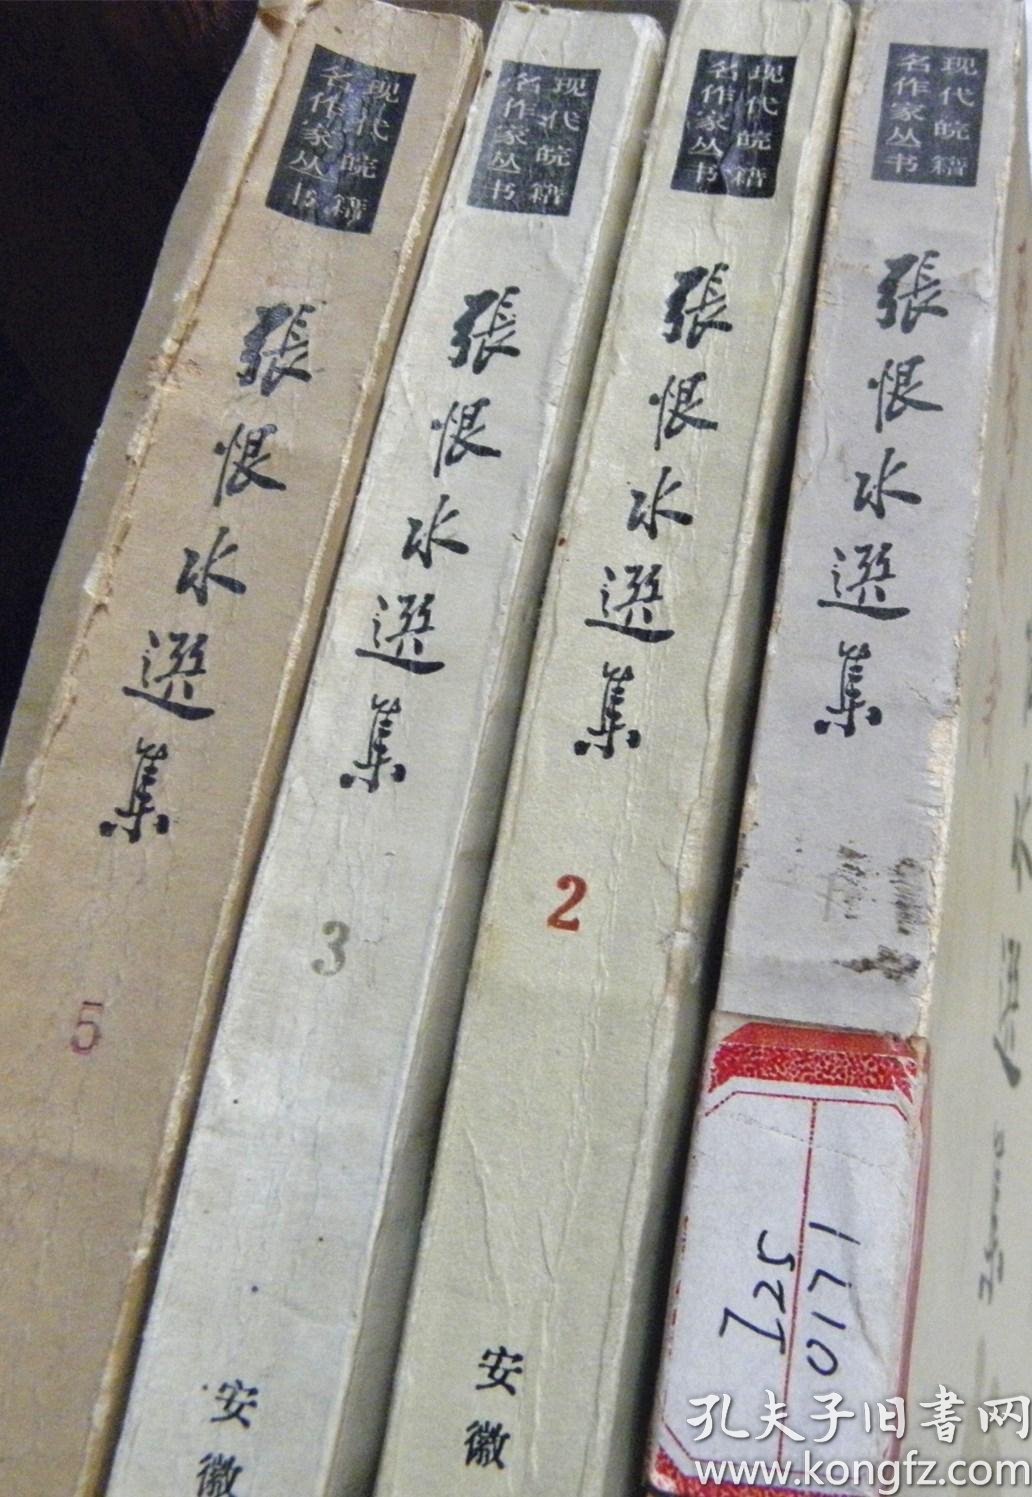 现代皖籍
名作家丛书
張恨水選集
5
现代皖籍
名作家丛书
張恨水選集
3
安徽
现代皖籍
名作家丛书
張恨水選集
2
安徽
现代皖籍
名作家丛书
張恨水選集
I25
0171
孔夫子旧書网
www.kongfz.com